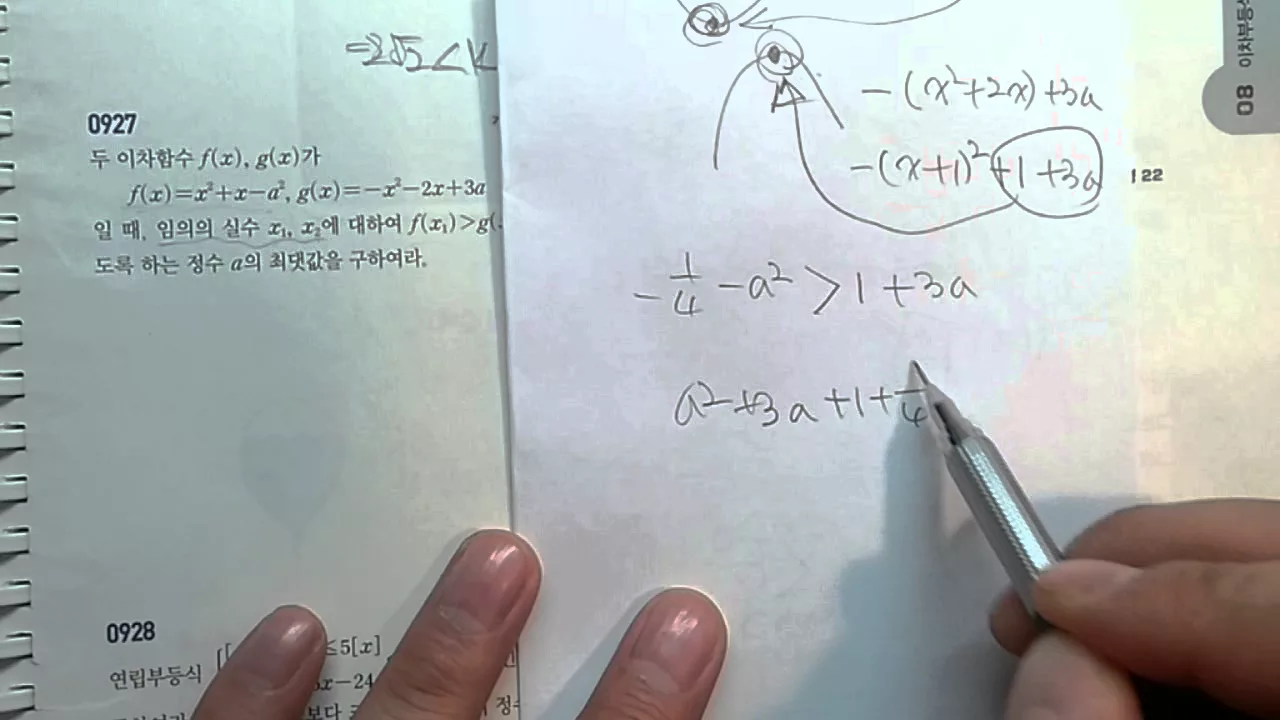 =2√2<k
0927
두 이차함수 f(x), g(x)가
f(x)=x²+x-a², g(x)=-x²-2x+3a
일 때, 임의의 실수 x₁, x₂에 대하여 f(x₁)>g(
도록 하는 정수 a의 최댓값을 구하여라.
0928
≤5[x]
연립부등식
x-24
보다
정
-(x²+2x)+3a
-(x+1)²+1+3a
122
-1/4-a²>1+3a
a²+3a+1+1/4
08 이차부등식